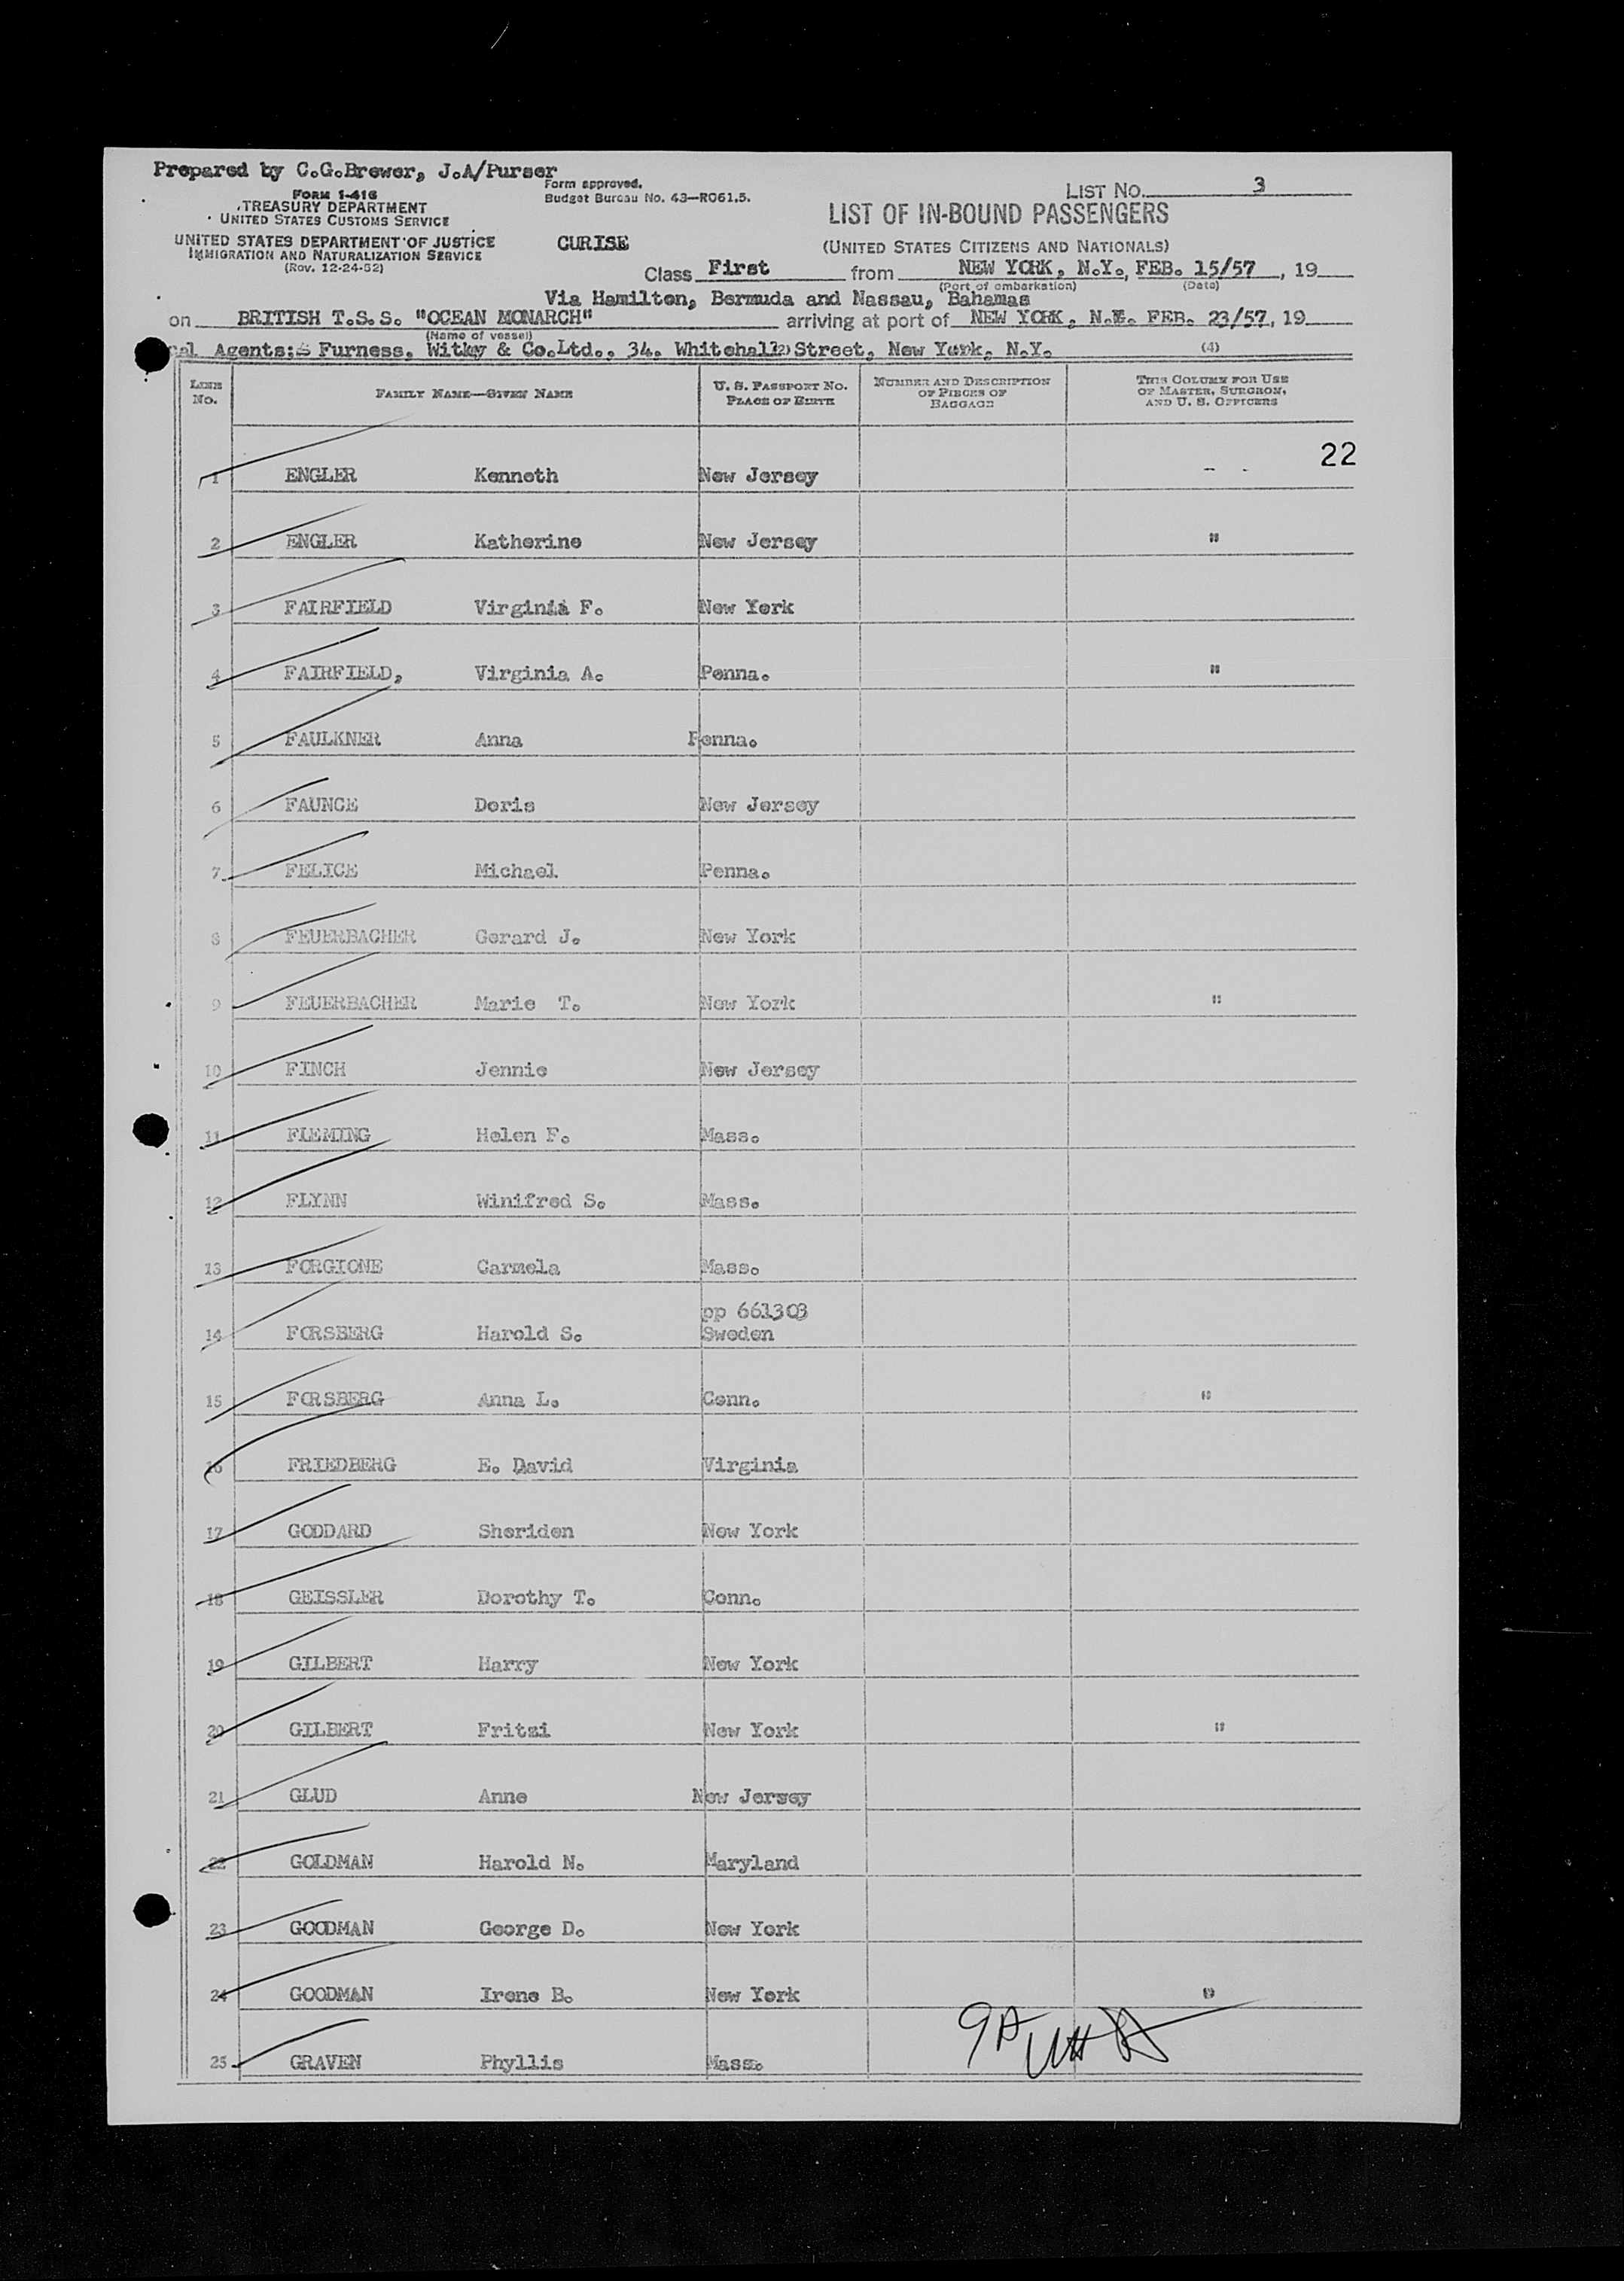 Prepared by C.G.Brewer, J.A/Purser
FORM I-416
TREASURY DEPARTMENT
UNITED STATES CUSTOMS SERVICE
UNITED STATES DEPARTMENT OF JUSTICE
IMMIGRATION AND NATURALIZATION SERVICE
(Rev. 12-24-52)
Form approved.
Budget Bureau No. 43—R061.5.
CURISE
LIST No. 3
LIST OF IN-BOUND PASSENGERS
(UNITED STATES CITIZENS AND NATIONALS)
Class First from NEW YORK, N.Y., FEB. 15/57, 19
(Port of embarkation) (Date)
Via Hamilton, Bermuda and Nassau, Bahamas
on BRITISH T.S.S. "OCEAN MONARCH" arriving at port of NEW YORK, N.Y. FEB. 23/57, 19
(Name of vessel)
Agents: Furness, Withy & Co.Ltd., 34. Whitehall Street, New York, N.Y. (4)
LINE No. FAMILY NAME—GIVEN NAME U. S. PASSPORT No. PLACE OF BIRTH NUMBER AND DESCRIPTION OF PIECES OF BAGGAGE THIS COLUMN FOR USE OF MASTER, SURGEON, AND U. S. OFFICERS
22
1 ENGLER Kenneth New Jersey - -
2 ENGLER Katherine New Jersey "
3 FAIRFIELD Virginia F. New York
4 FAIRFIELD, Virginia A. Penna. "
5 FAULKNER Anna Penna.
6 FAUNCE Doris New Jersey
7 FELICE Michael Penna.
8 FEUERBACHER Gerard J. New York
9 FEUERBACHER Marie T. New York "
10 FINCH Jennie New Jersey
11 FLEMING Helen F. Mass.
12 FLYNN Winifred S. Mass.
13 FORGIONE Carmela Mass.
pp 661303
14 FORSBERG Harold S. Sweden
15 FORSBERG Anna L. Conn. "
16 FRIEDBERG E. David Virginia
17 GODDARD Sheriden New York
18 GEISSLER Dorothy T. Conn.
19 GILBERT Harry New York
20 GILBERT Fritzi New York "
21 GLUD Anne New Jersey
22 GOLDMAN Harold N. Maryland
23 GOODMAN George D. New York
24 GOODMAN Irene B. New York "
25 GRAVEN Phyllis Mass.